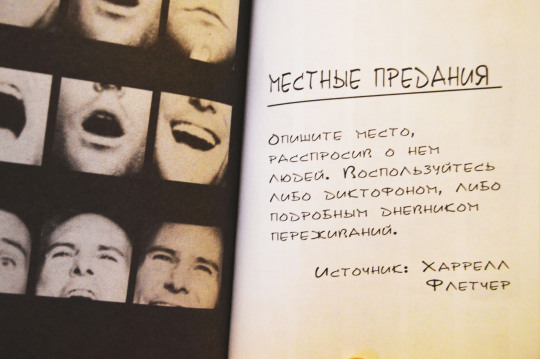 Местные предания
Опишите место,
расспросив о нем
людей. Воспользуйтесь
либо диктофоном, либо
подробным дневником
переживаний.
Источник: Харрелл
Флетчер